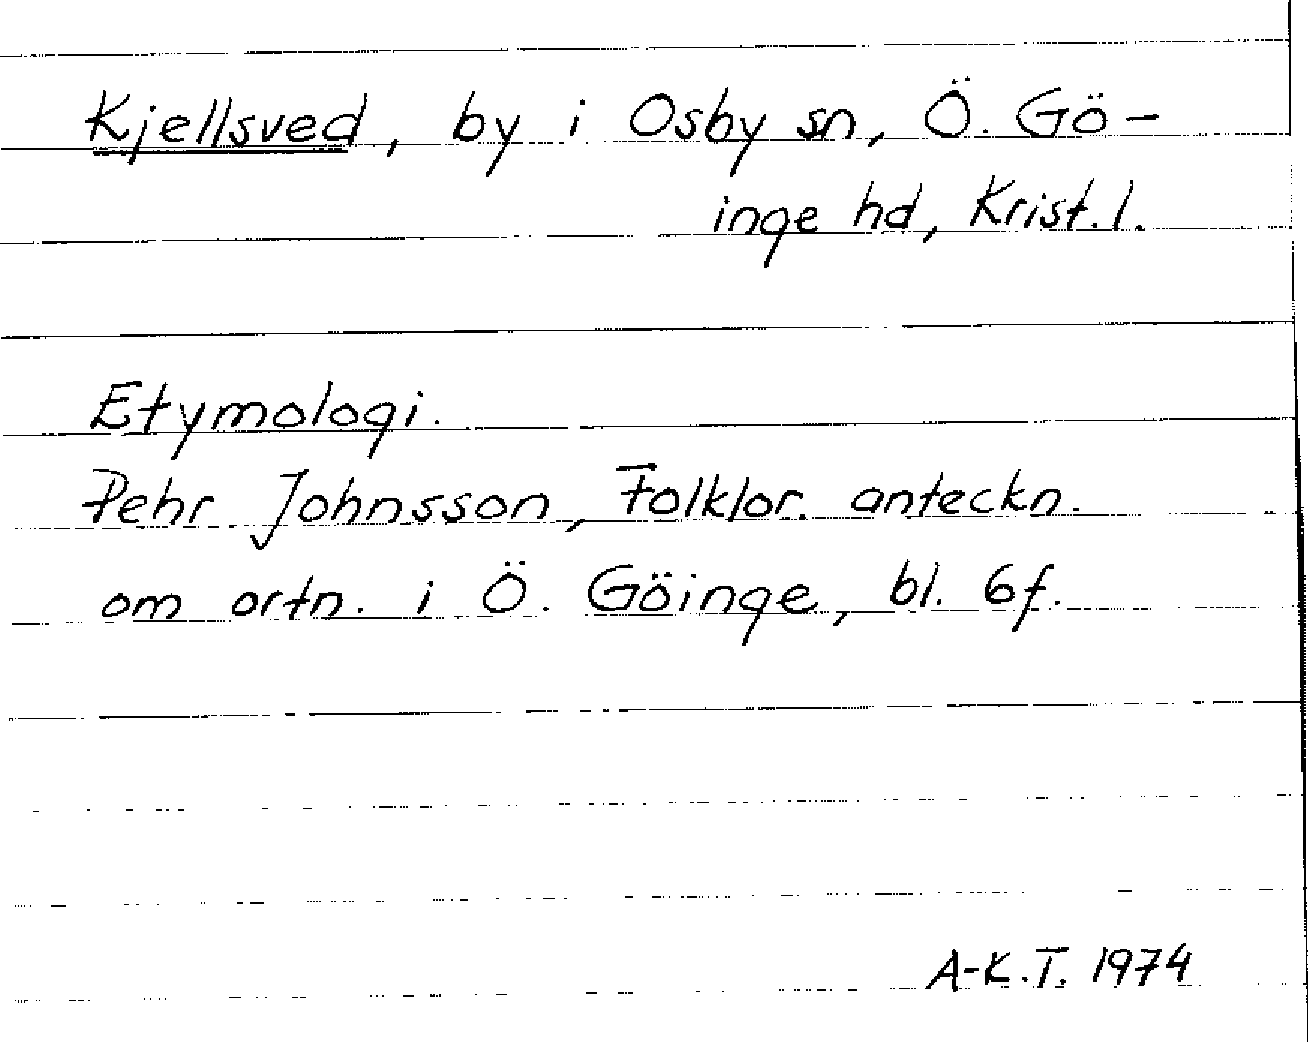 Kjellsved, by i Osby sn, Ö. Gö-
inge hd, Krist. l.
Etymologi.
Pehr Johnsson, Folklor. anteckn.
om ortn. i Ö. Göinge, bl. 6f.
A-K.T. 1974